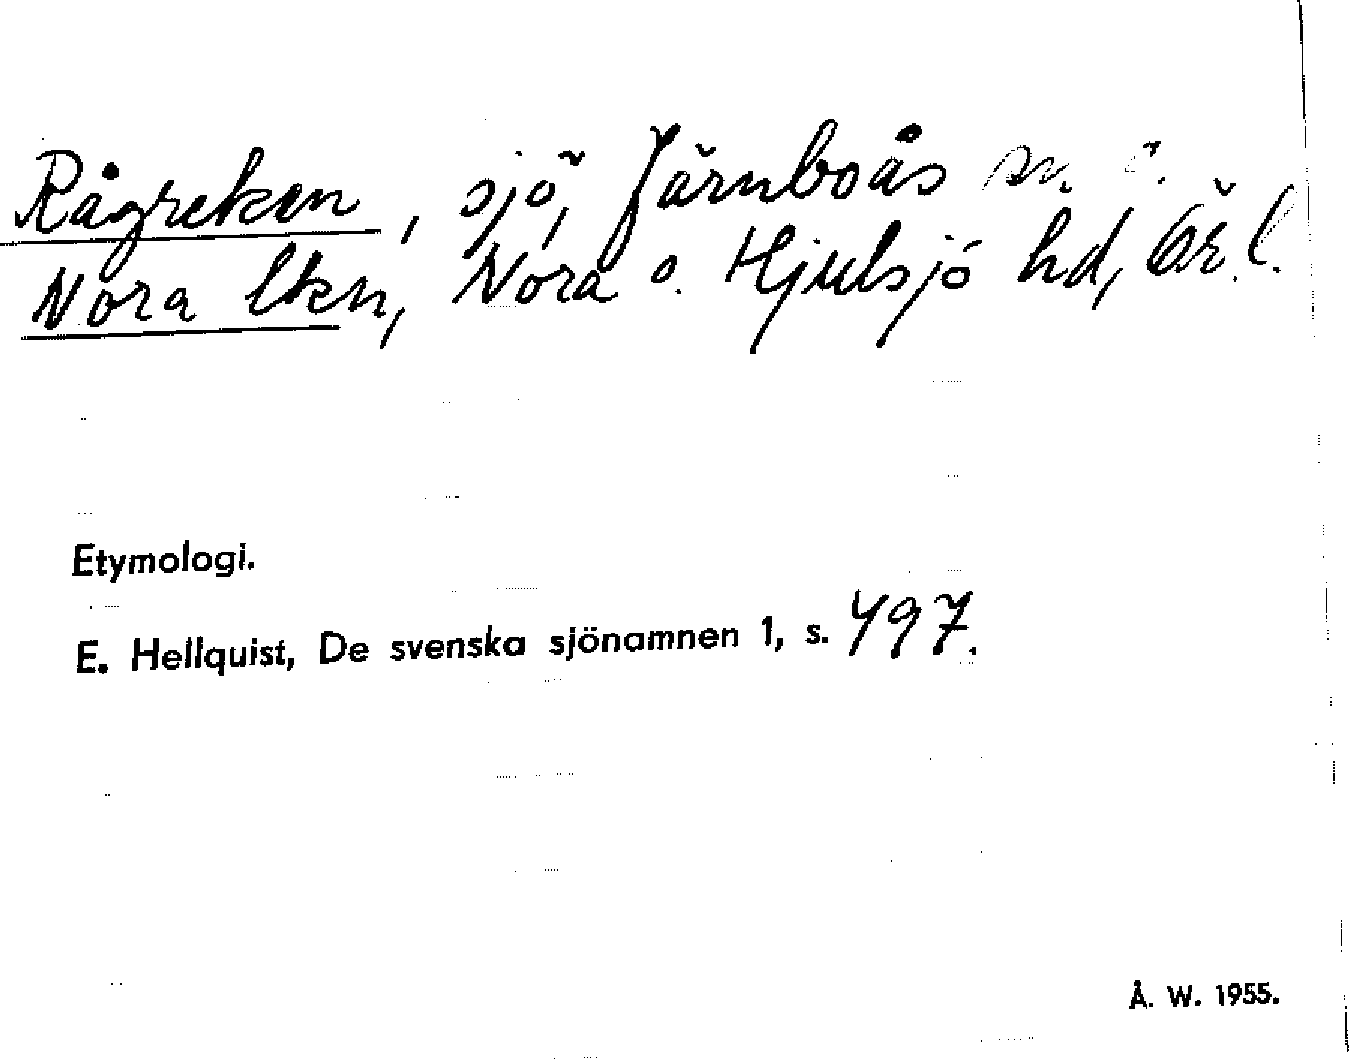 Rågreken, sjö, Järnboås sn. o.
Nora lkn, Nora o. Hjulsjö hd, Ör. l.
Etymologi.
E. Hellquist, De svenska sjönamnen 1, s. 497.
Å. W. 1955.